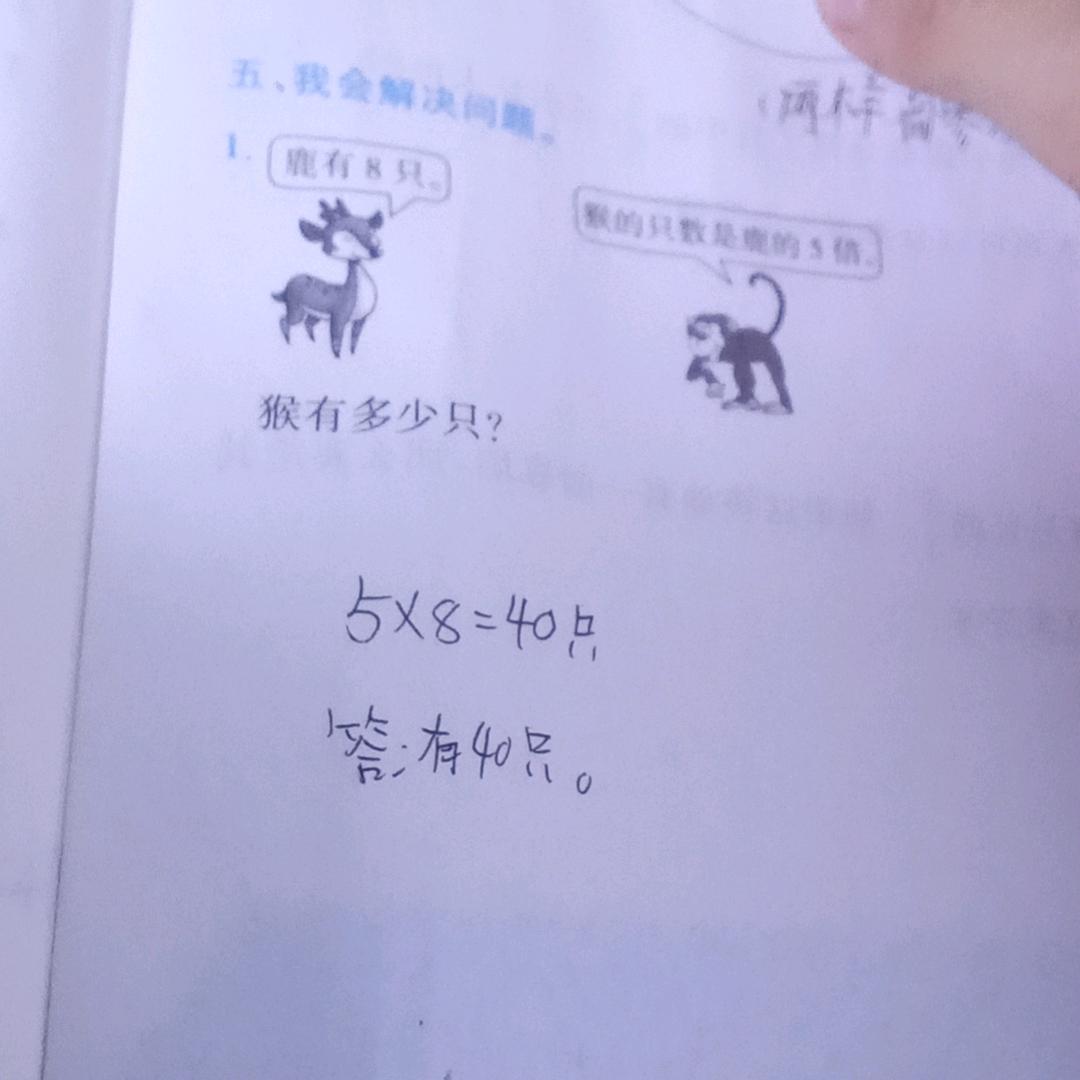 五、我会解决问题。
(两样
1. 鹿有 8 只。
猴的只数是鹿的 5 倍。
猴有多少只?
5×8=40只
答:有40只。